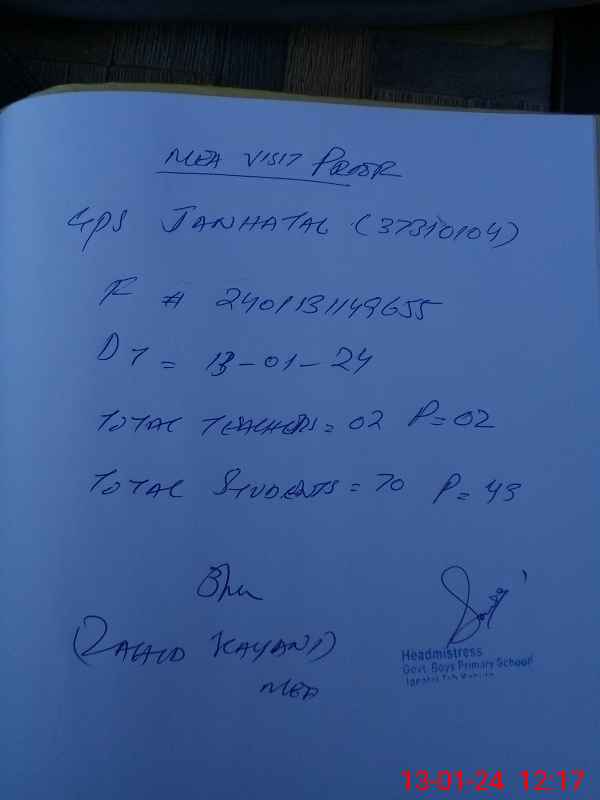 MEA VISIT PROOF
GPS JANHATAL (37310104)
F # 2401131149655
DT = 13-01-24
TOTAL TEACHERS = 02 P=02
TOTAL STUDENTS = 70 P=43
(ZAHID KAYANI)
MEA
Headmistress
Govt. Boys Primary School
13-01-24 12:17